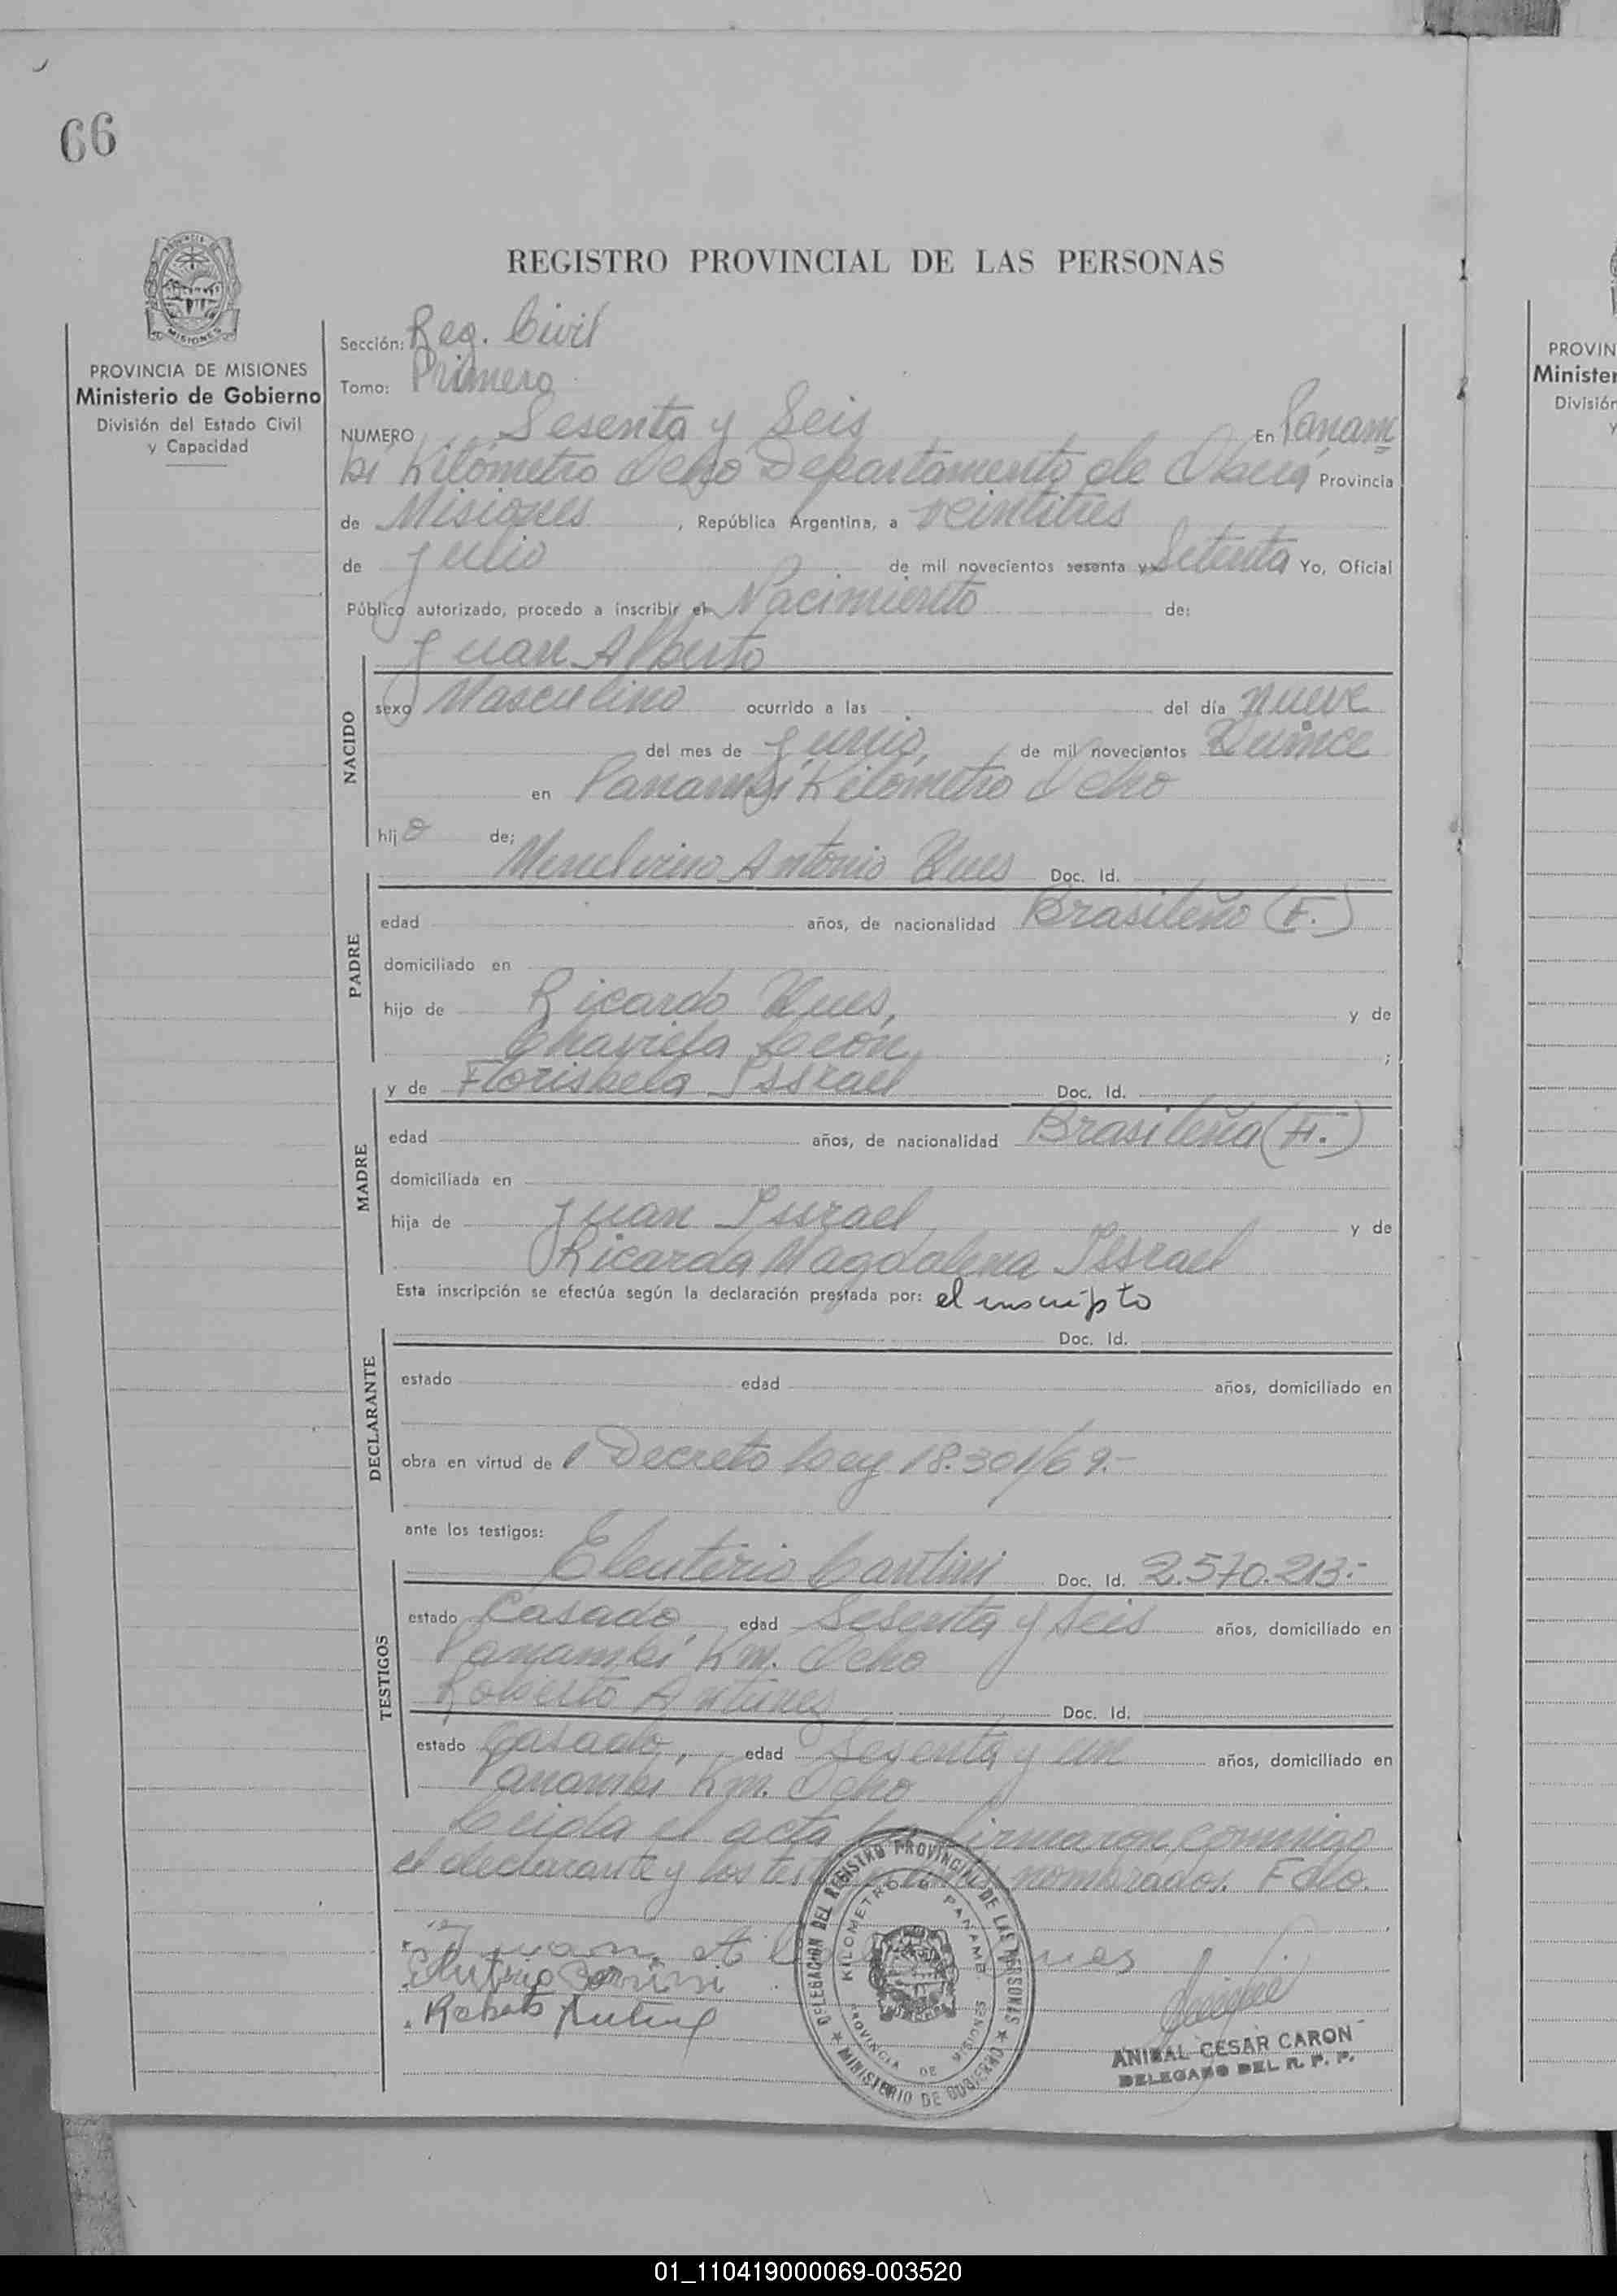 66
REGISTRO PROVINCIAL DE LAS PERSONAS
PROVINCIA DE MISIONES
Ministerio de Gobierno
División del Estado Civil
y Capacidad
Sección: Reg. Civil
Tomo: Primero
NUMERO Sesenta y Seis En Panam
bí Kilómetro Ocho Departamento de Oberá Provincia
de Misiones, República Argentina, a veintitres
de Julio de mil novecientos sesenta y Setenta Yo, Oficial
Público autorizado, procedo a inscribir el Nacimiento de:
Juan Alberto
NACIDO
sexo Masculino ocurrido a las del día nueve
del mes de Junio, de mil novecientos Quince
en Panambí Kilómetro Ocho
hijo de;
Antonio Doc. Id.
PADRE
edad años, de nacionalidad Brasileño (F.)
domiciliado en
hijo de Ricardo y de
;
y de Florisbela Issrael Doc. Id.
MADRE
edad años, de nacionalidad Brasileña (F.)
domiciliada en
hija de Juan Issrael y de
Ricarda Magdalena Issrael
Esta inscripción se efectúa según la declaración prestada por: el inscripto
Doc. Id.
DECLARANTE
estado edad años, domiciliado en
obra en virtud de Decreto Ley 18.301/69.-
ante los testigos:
Eleuterio Doc. Id. 2.570.213.-
TESTIGOS
estado Casado, edad Sesenta y Seis años, domiciliado en
Panambí Km. Ocho
Roberto Antunez Doc. Id.
estado Casado, edad Sesenta y un años, domiciliado en
Panambí Km. Ocho
Leida el acta firmaron conmigo
el declarante y los nombrados. Fdo.
Juan
Roberto
DELEGACION DEL REGISTRO PROVINCIAL DE LAS PERSONAS
KILOMETRO 8 PANAMBI
PROVINCIA DE MISIONES
★ MINISTERIO DE GOBIERNO ★
ANIBAL CESAR CARON
DELEGADO DEL R. P. P.
MISIONES
PROVIN
Minister
División
y
01_110419000069-003520